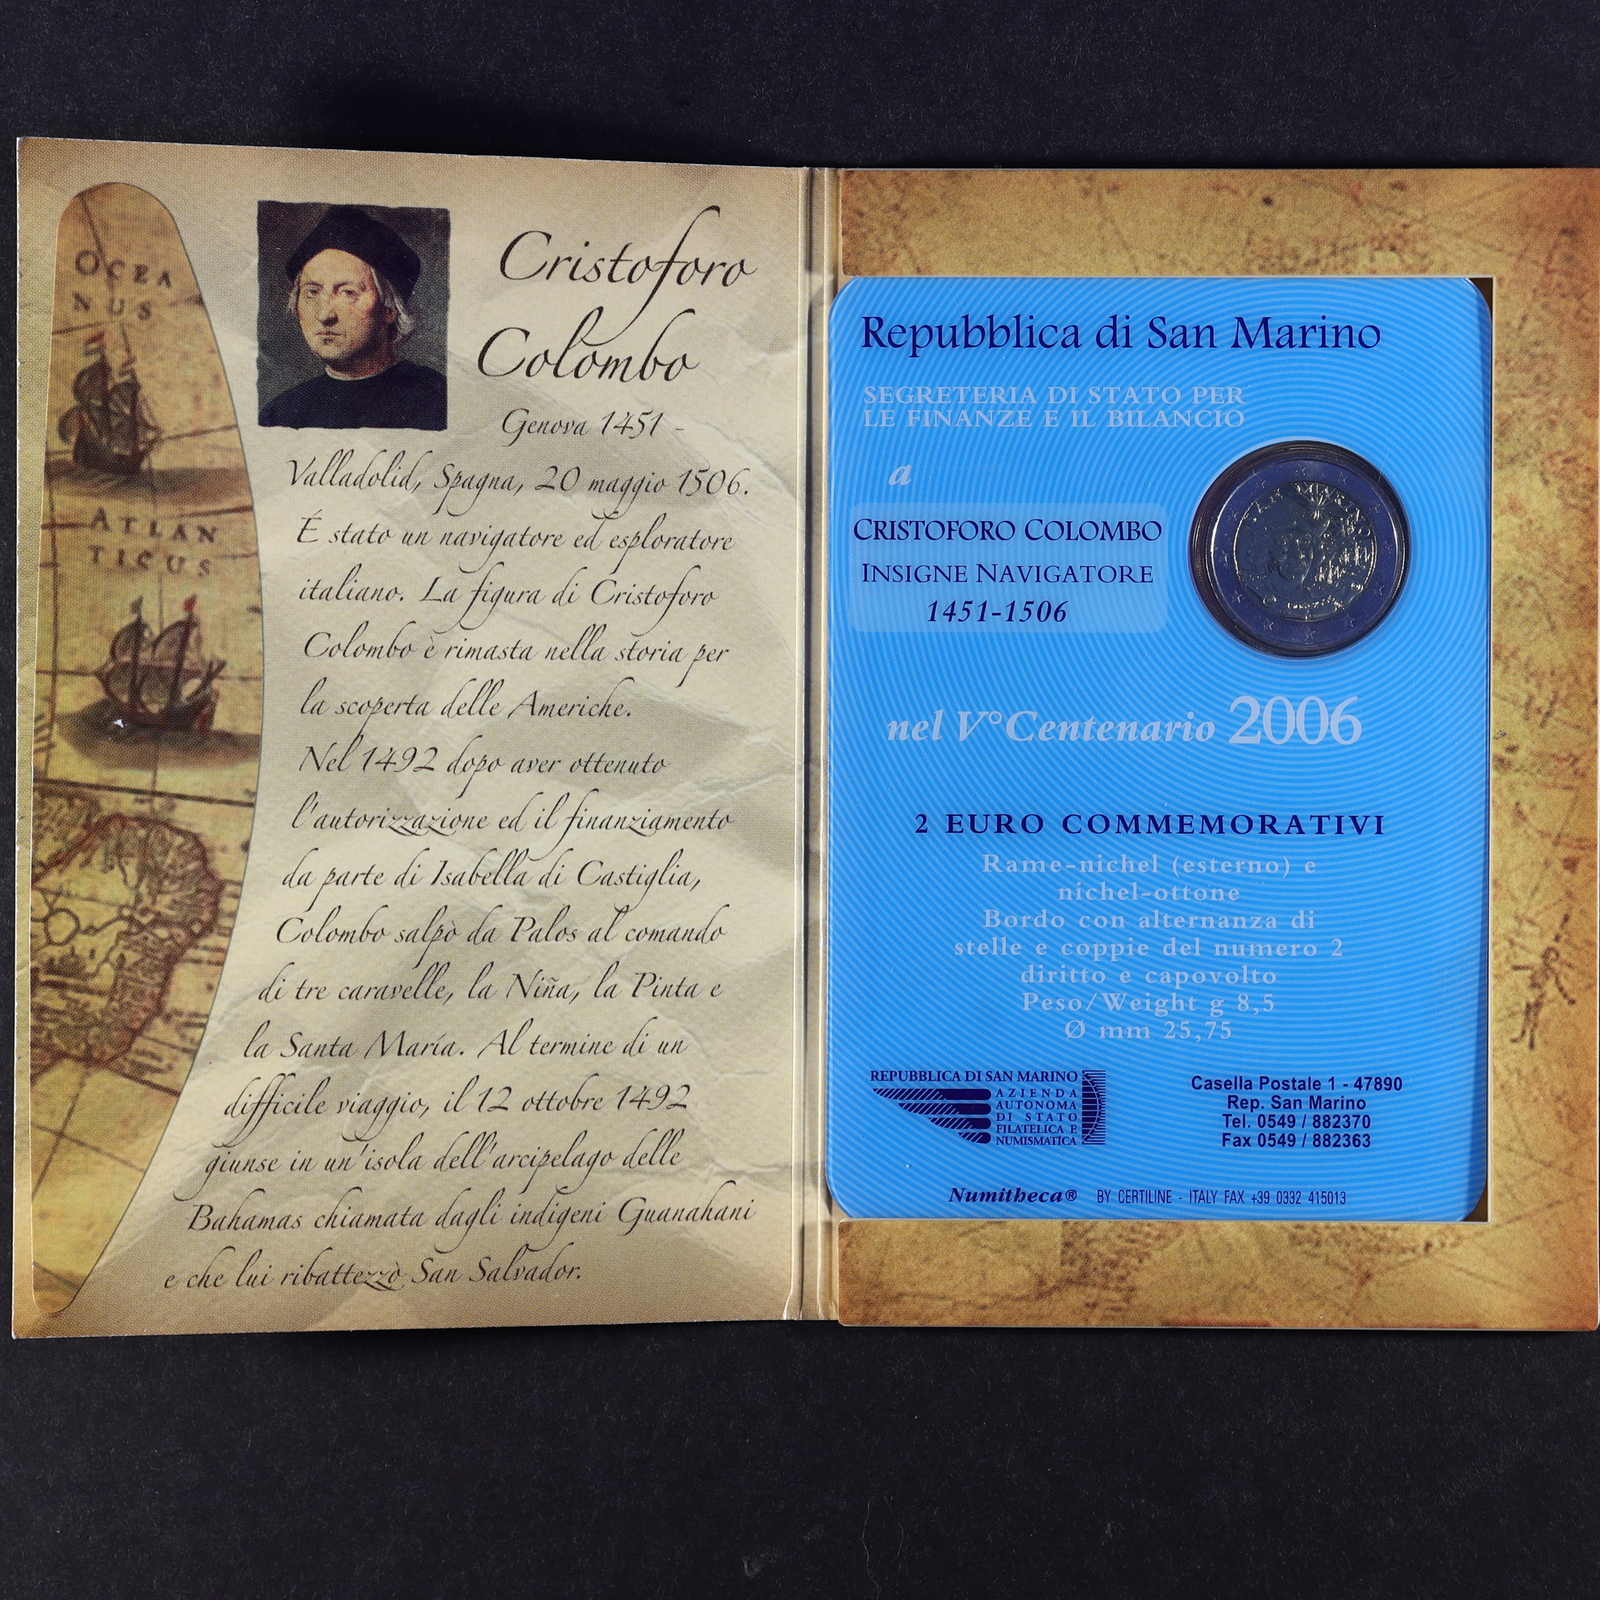 OCEA
NUS
ATLAN
TICUS
Cristoforo
Colombo
Genova 1451 -
Valladolid, Spagna, 20 maggio 1506.
É stato un navigatore ed esploratore
italiano. La figura di Cristoforo
Colombo è rimasta nella storia per
la scoperta delle Americhe.
Nel 1492 dopo aver ottenuto
l'autorizzazione ed il finanziamento
da parte di Isabella di Castiglia,
Colombo salpò da Palos al comando
di tre caravelle, la Niña, la Pinta e
la Santa María. Al termine di un
difficile viaggio, il 12 ottobre 1492
giunse in un'isola dell'arcipelago delle
Bahamas chiamata dagli indigeni Guanahani
e che lui ribattezzò San Salvador.
Repubblica di San Marino
SEGRETERIA DI STATO PER
LE FINANZE E IL BILANCIO
a
CRISTOFORO COLOMBO
INSIGNE NAVIGATORE
1451-1506
SAN MARINO
nel V°Centenario 2006
2 EURO COMMEMORATIVI
Rame-nichel (esterno) e
nichel-ottone
Bordo con alternanza di
stelle e coppie del numero 2
diritto e capovolto
Peso/Weight g 8,5
Ø mm 25,75
REPUBBLICA DI SAN MARINO
AZIENDA
AUTONOMA
DI STATO
FILATELICA E
NUMISMATICA
Casella Postale 1 - 47890
Rep. San Marino
Tel. 0549 / 882370
Fax 0549 / 882363
Numitheca® BY CERTILINE - ITALY FAX +39 0332 415013